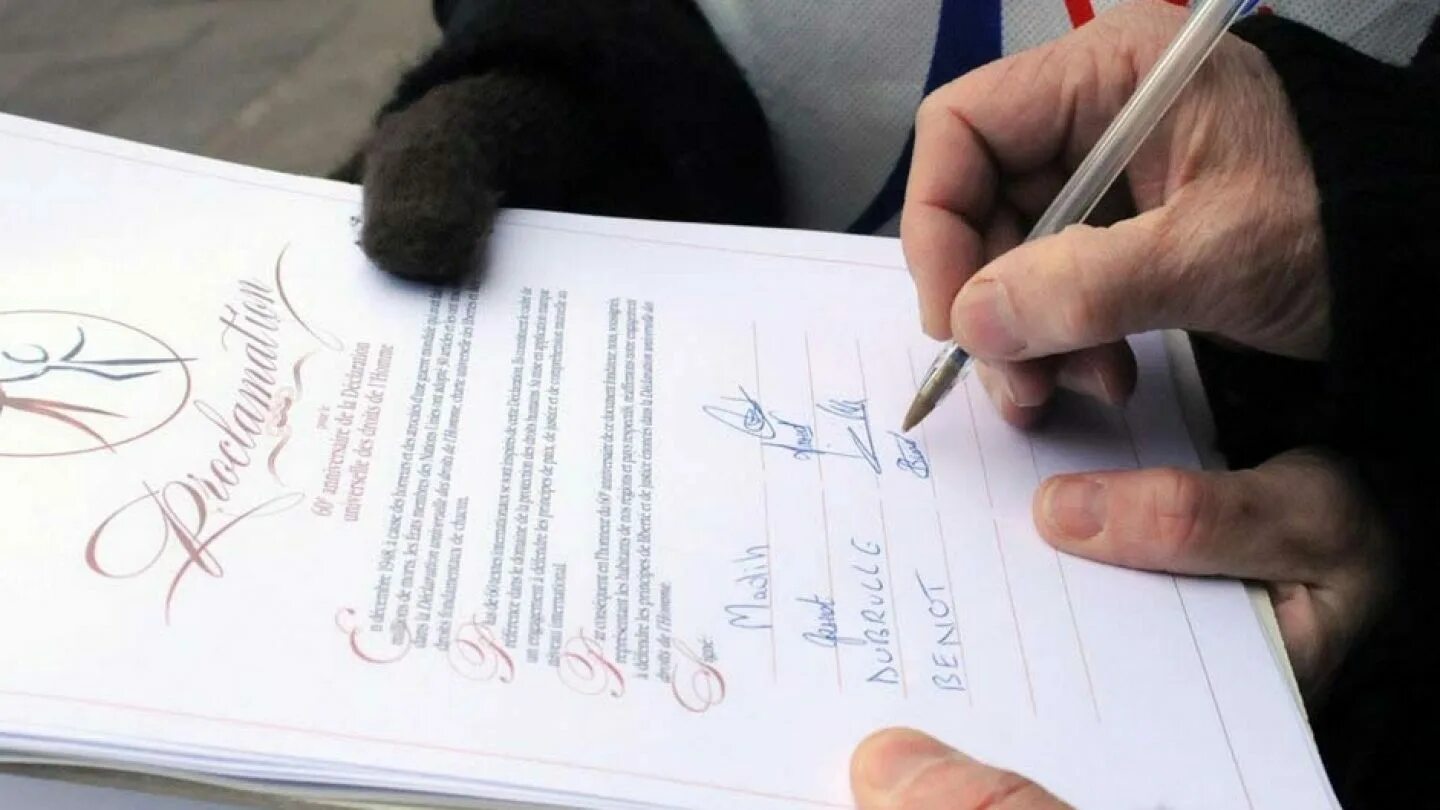 Proclamation
pour le
60e anniversaire de la Déclaration
universelle des droits de l'Homme
En décembre 1948, à cause des horreurs et des atrocités d'une guerre mondiale qui
millions de morts, les États membres des Nations Unies ont adopté 30 articles et les ont
dans la Déclaration universelle des droits de l'Homme, charte universelle des libertés et
droits fondamentaux de chacun.
Plus de 60 textes internationaux se sont inspirés de cette déclaration, ils constituent le cadre de
référence dans le domaine de la protection des droits humains. Sa mise en application marque
un engagement à défendre les principes de paix, de justice et de compréhension mutuelle au
niveau international.
Par conséquent en l'honneur du 60e anniversaire de ce document fondateur, nous, soussignés,
représentant les habitants de nos régions et pays respectifs, réaffirmons notre engagement
à défendre les principes de liberté et de justice énoncés dans la Déclaration universelle des
droits de l'Homme.
Signé:
Madih
DUBRULLE
BENOT